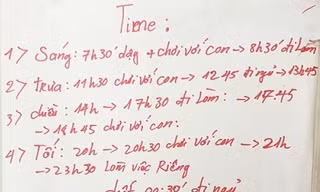 Time:
1> Sáng: 7h30' dậy + chơi với con → 8h30 đi làm
2> trưa: 11h30 chơi với con → 12h45 đi ngủ → 13h45
3> chiều: 14h → 17h30 đi làm: → 17h45
→ 18h45 chơi với con:
4> Tối: 20h → 20h30 chơi với con → 21h
→ 23h30 làm việc Riêng
00:30' đi ngủ